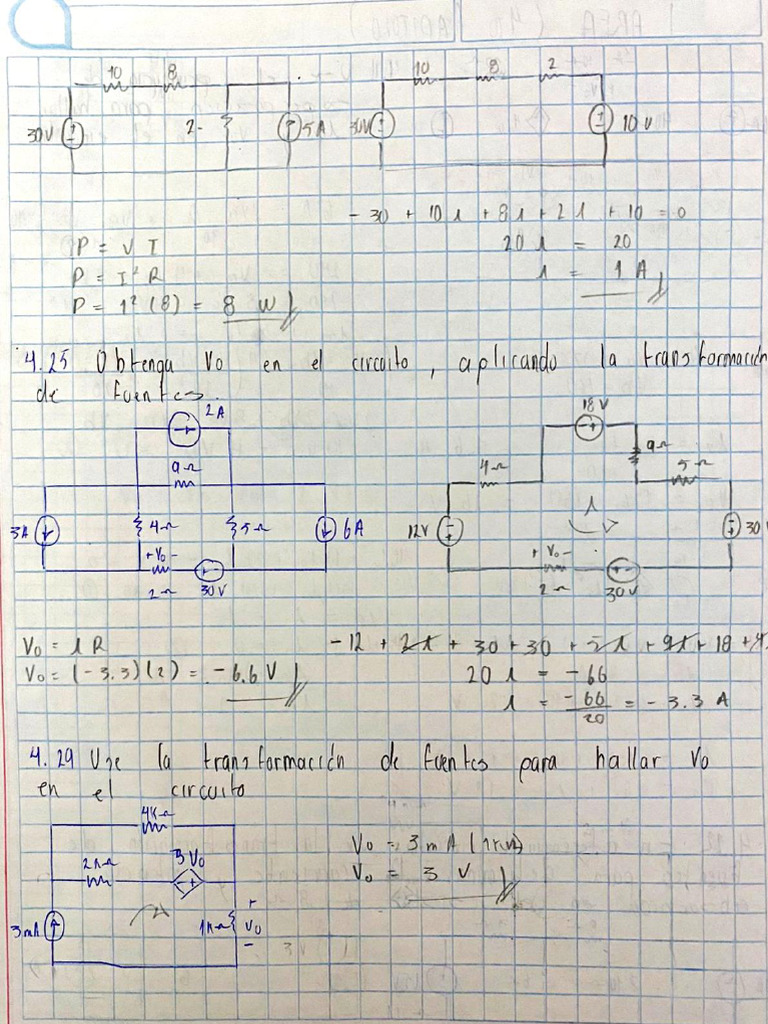 10 8 10 8 2
30V 2 5A 30V 10 V
- 30 + 10 i + 8 i + 2 i + 10 = 0
P = V I 20 i = 20
P = I² R i = 1 A
P = 1² (8) = 8 W
4.25 Obtenga Vo en el circuito, aplicando la transformación
de fuentes.
2A 18V
9Ω 4Ω 9Ω 5Ω
3A 4Ω 5Ω 6A 12V i 30
+ Vo - + Vo -
2Ω 30V 2Ω 30V
Vo = i R -12 + 2i + 30 + 30 + 5i + 9i + 18 + 4
Vo = (-3.3)(2) = -6.6 V 20 i = -66
i = -66/20 = -3.3 A
4.29 Use la transformación de fuentes para hallar Vo
en el circuito
4KΩ
2KΩ 3Vo Vo = 3mA (1KΩ)
- + Vo = 3 V
3mA 1KΩ + Vo -